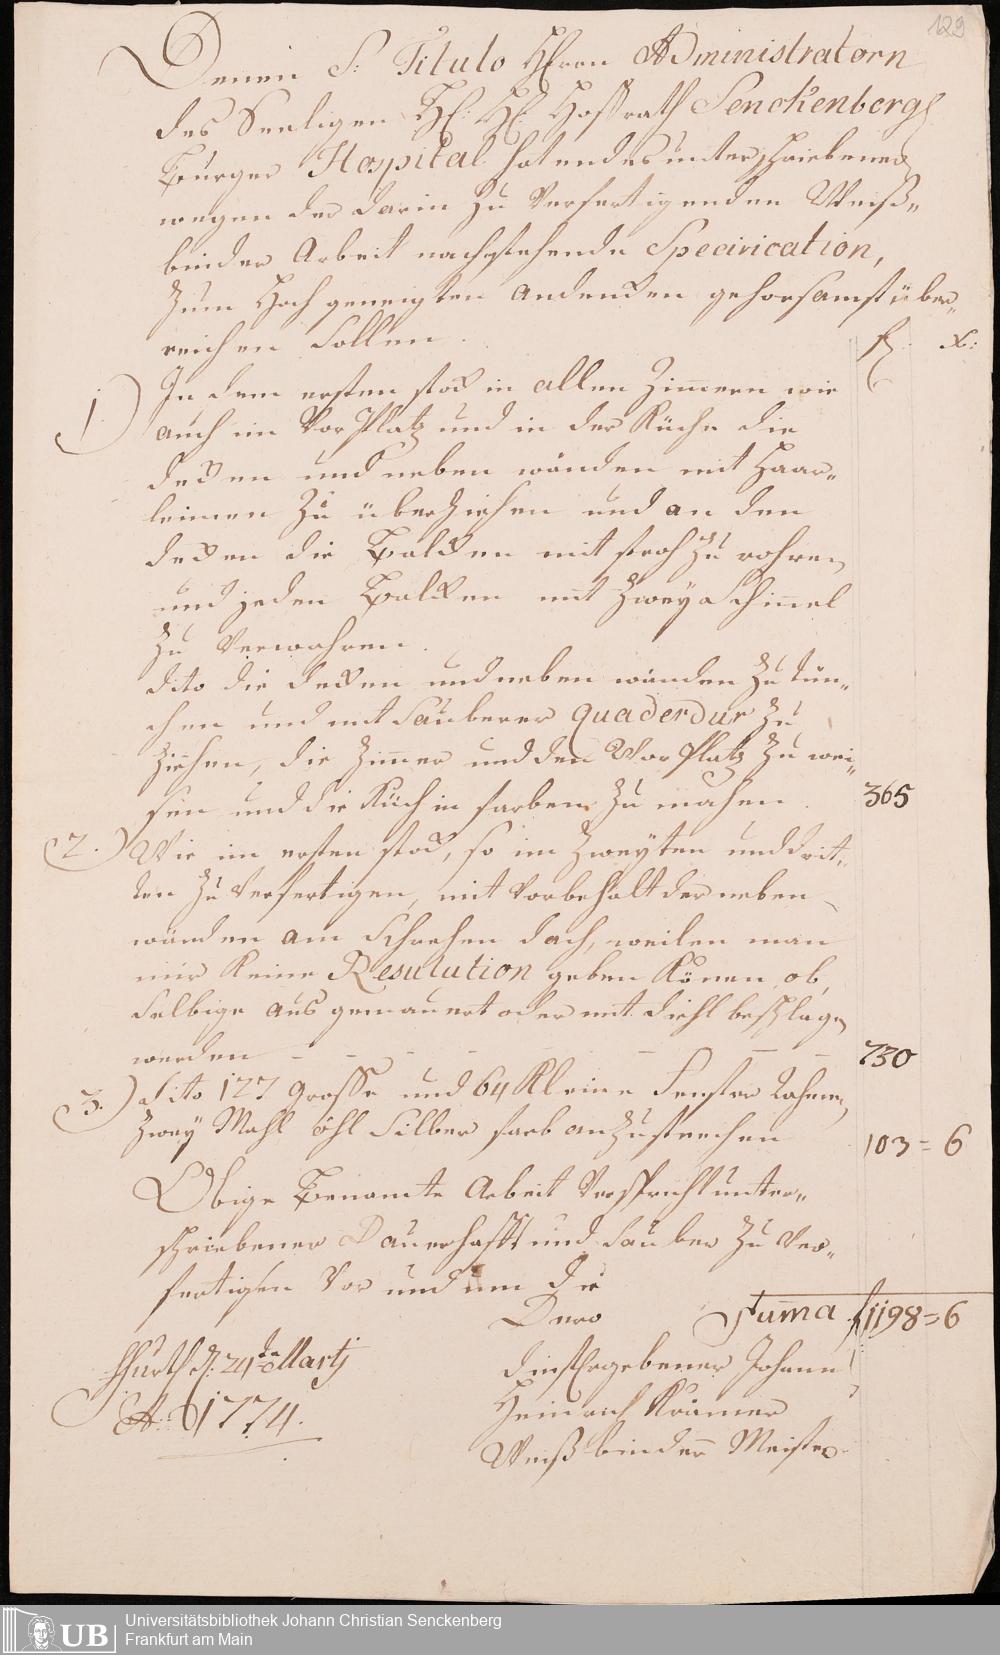 129
Denen S: Titulo HErren Administratorn
des Seeligen H: H: Hoffrath Senckenbergs
Burger Hospital hat endes unterschriebener
wegen der darin zu Verfertigenden Weiß„
binder Arbeit nachstehende Specivication,
Zum Hoch geneigten andencken gehorsamst über„
reichen sollen.
f. x:
1) In dem ersten stock in allen Zimern wie
auch im Vor Platz und in der Küche die
decken und neben wänden mit Haar„
leimen zu überziehen und an den
decken die Balcken mit stroh zu rohren
und jeden Balcken mit Zwey Schinnel
zu Verwahren.
dito die decken und neben wänden zu tün„
chen und mit sauberer quaderdur zu
ziehen, die Zimer und den Vor Platz zu wei„
sen und die Küch in farben zu machen. 365
2.) Wie im ersten stock, so im Zweyten und drit„
ten zu Verfertigen, mit Vorbehalt der neben
wänden am Schrehen dach, weilen man
mir Keine Resulution geben Könen, ob
selbige aus gemauert oder mit diehl beschlagen
werden - - - - - 730
3.) dito 127 grosse und 64 Kleine Fenster Rahmen
Zwey Mahl öhl silber farb anzustrechen 103=6
Obige Benamte Arbeit Verspricht unter„
schriebener Dauerhafft und sauber zu Ver„
fertigen Vor und um die
Suma f 1198=6
Dero
dinst Ergebener Johann
Heinrich Krämer
Weiß binder Meister
ffurth d: 24ten Martj
Ao: 1774.
Universitätsbibliothek Johann Christian Senckenberg
Frankfurt am Main
UB